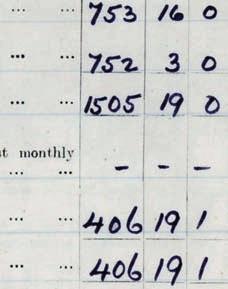 ... ... 753 16 0
... ... 752 3 0
... ... 1505 19 0
t monthly
... ... - - -
... ... 406 19 1
... ... 406 19 1